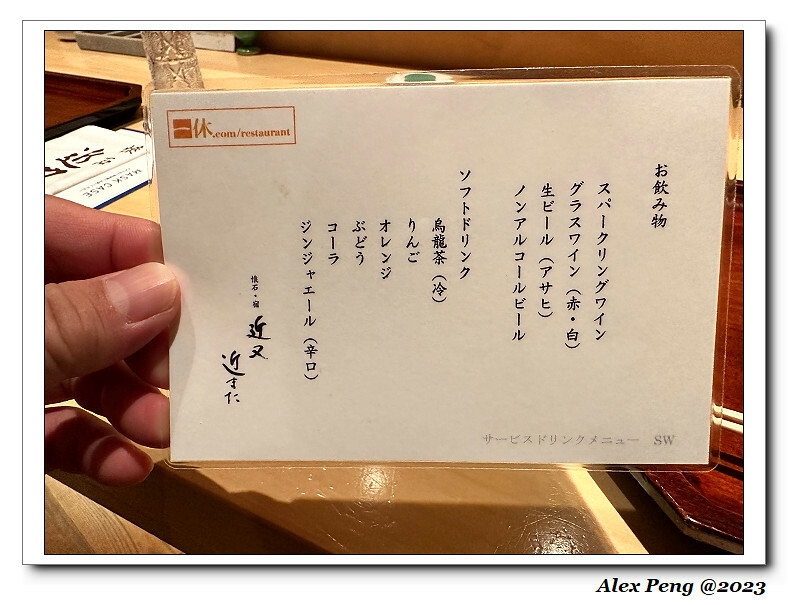 一休.com/restaurant
お飲み物
スパークリングワイン
グラスワイン（赤・白）
生ビール（アサヒ）
ノンアルコールビール
ソフトドリンク
烏龍茶（冷）
りんご
オレンジ
ぶどう
コーラ
ジンジャエール（辛口）
懐石・宿
近又
近又
サービスドリンクメニュー　SW
MASK CASE
Alex Peng @2023